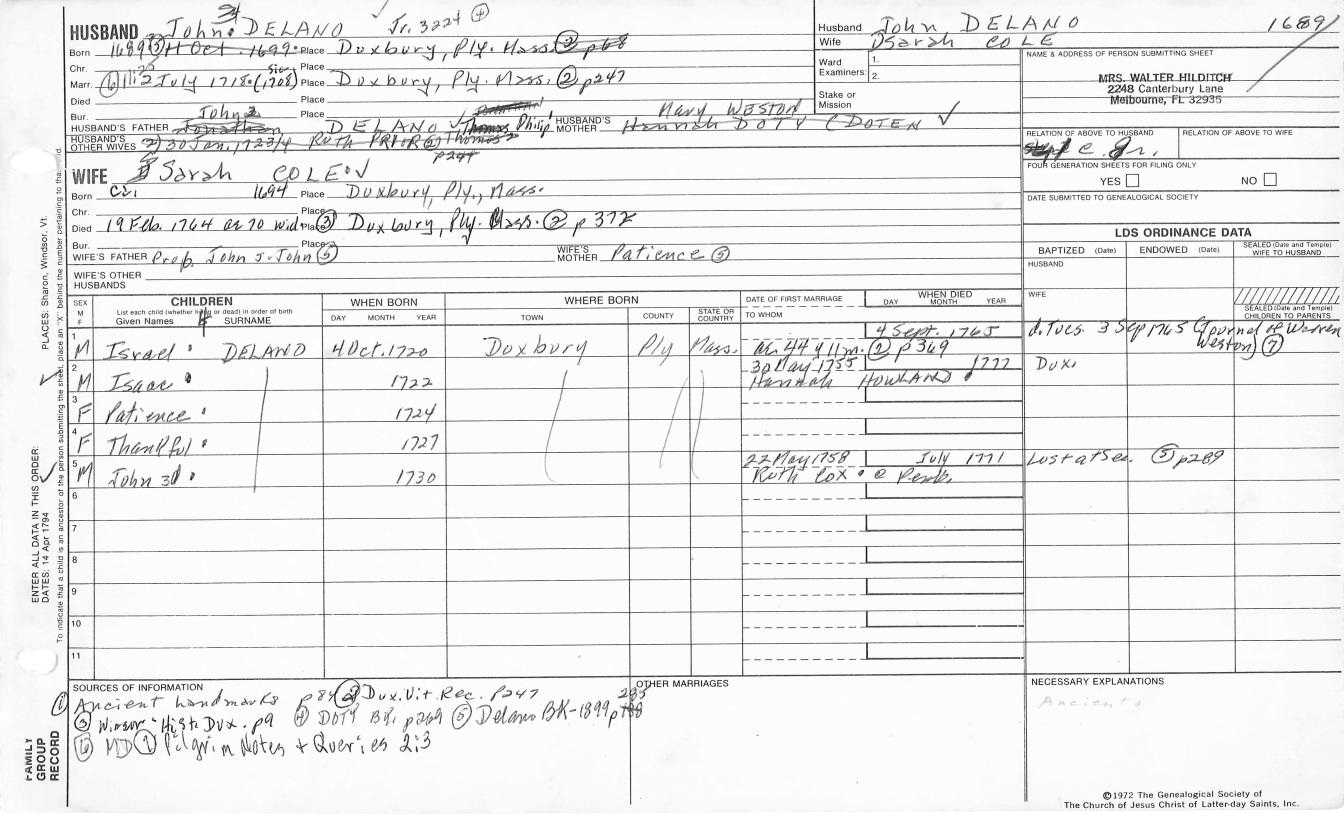 HUSBAND John DELANO Jr. 3224 (4)
Born 1689 (3) 11 Oct. 1699 Place Duxbury, Ply. Mass. (2) p68
Chr. Place
Marr. (6) 11:2 July 1718 (1708) Place Duxbury, Ply. Mass. (2) p247
Died Place
Bur. Place
HUSBAND'S FATHER John 2 Jonathan DELANO Thomas Philip HUSBAND'S MOTHER Mary WESTON Hannah DOTY (DOTEN
HUSBAND'S OTHER WIVES 2) 30 Jan. 1723/4 Ruth PRIOR (2) Thomas 2
p247
WIFE Sarah COLE
Born Ca. 1694 Place Duxbury, Ply., Mass.
Chr. Place
Died 19 Feb. 1764 ae 70 wid. Place (3) Duxbury, Ply. Mass. (2) p 372
Bur. Place
WIFE'S FATHER Prob. John J. John (5) WIFE'S MOTHER Patience (5)
WIFE'S OTHER HUSBANDS
Husband John DELANO 1689/
Wife Sarah COLE
Ward Examiners: 1.
2.
Stake or Mission
NAME & ADDRESS OF PERSON SUBMITTING SHEET
MRS. WALTER HILDITCH
2248 Canterbury Lane
Melbourne, FL 32935
RELATION OF ABOVE TO HUSBAND RELATION OF ABOVE TO WIFE
FOUR GENERATION SHEETS FOR FILING ONLY
YES NO
DATE SUBMITTED TO GENEALOGICAL SOCIETY
LDS ORDINANCE DATA
BAPTIZED (Date) ENDOWED (Date) SEALED (Date and Temple) WIFE TO HUSBAND
HUSBAND
WIFE
SEALED (Date and Temple) CHILDREN TO PARENTS
SEX M F CHILDREN WHEN BORN WHERE BORN DATE OF FIRST MARRIAGE WHEN DIED
List each child (whether living or dead) in order of birth
Given Names SURNAME DAY MONTH YEAR TOWN COUNTY STATE OR COUNTRY TO WHOM DAY MONTH YEAR
1 M Israel DELANO 4 Oct. 1720 Duxbury Ply Mass. 4 Sept. 1765 d. Tues. 3 Sep 1765 (Journal of Warren Weston) (7)
ae. 44 y 11 m. (2) p369
2 M Isaac 1722 30 May 1755 1777 Dux.
Hannah HOWLAND
3 F Patience 1724
4 F Thankful 1727
5 M John 3d 1730 22 May 1758 July 1771 Lost at Sea. (5) p289
Ruth Cox @ Pemb.
6
7
8
9
10
11
SOURCES OF INFORMATION
(1) Ancient Landmarks p84 (2) Dux. Vit. Rec. p247 285
(3) Winsor "Hist. Dux. p9 (4) DOTY BK. p269 (5) Delano BK-1899 p
(6) MD (7) Pilgrim Notes + Queries 2:3
OTHER MARRIAGES
NECESSARY EXPLANATIONS
Ancients
©1972 The Genealogical Society of
The Church of Jesus Christ of Latter-day Saints, Inc.
PLACES: Sharon, Windsor, Vt.
ENTER ALL DATA IN THIS ORDER:
DATES: 14 Apr 1794
To indicate that a child is an ancestor of the person submitting the sheet, place an "X" behind the number pertaining to that child.
FAMILY GROUP RECORD